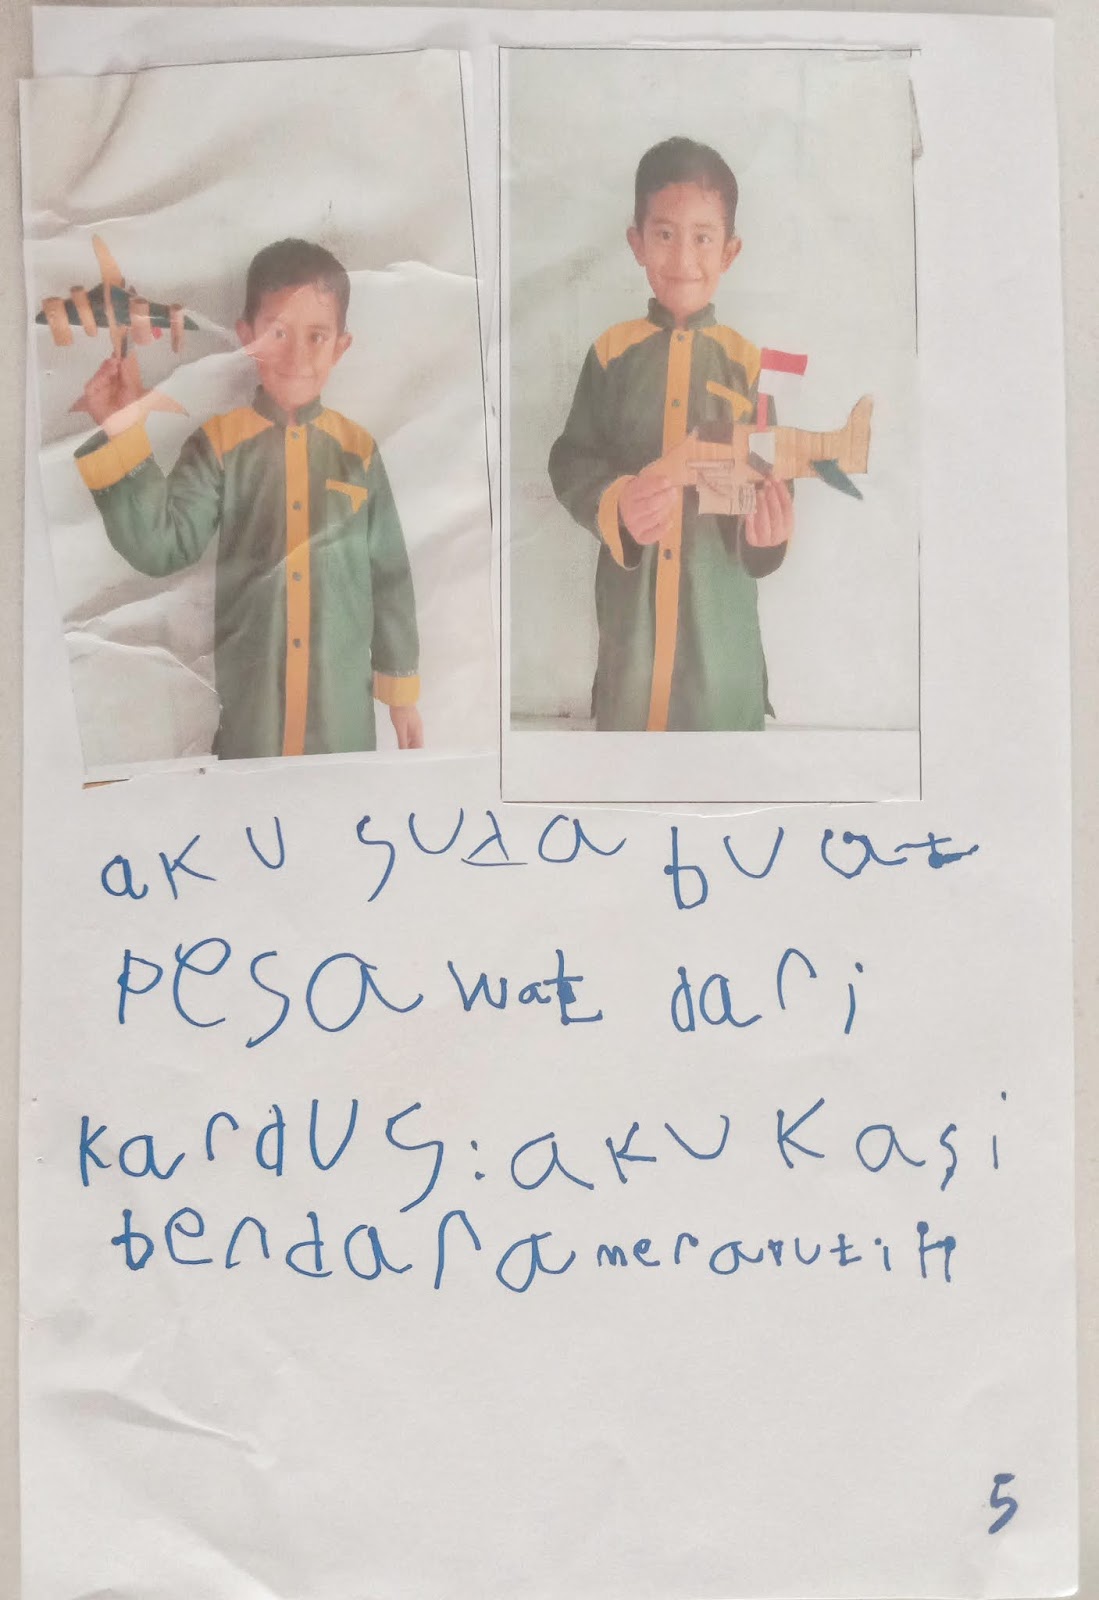 aku suda buat
pesawat dari
kardus: aku kasi
berdara merarutih
5